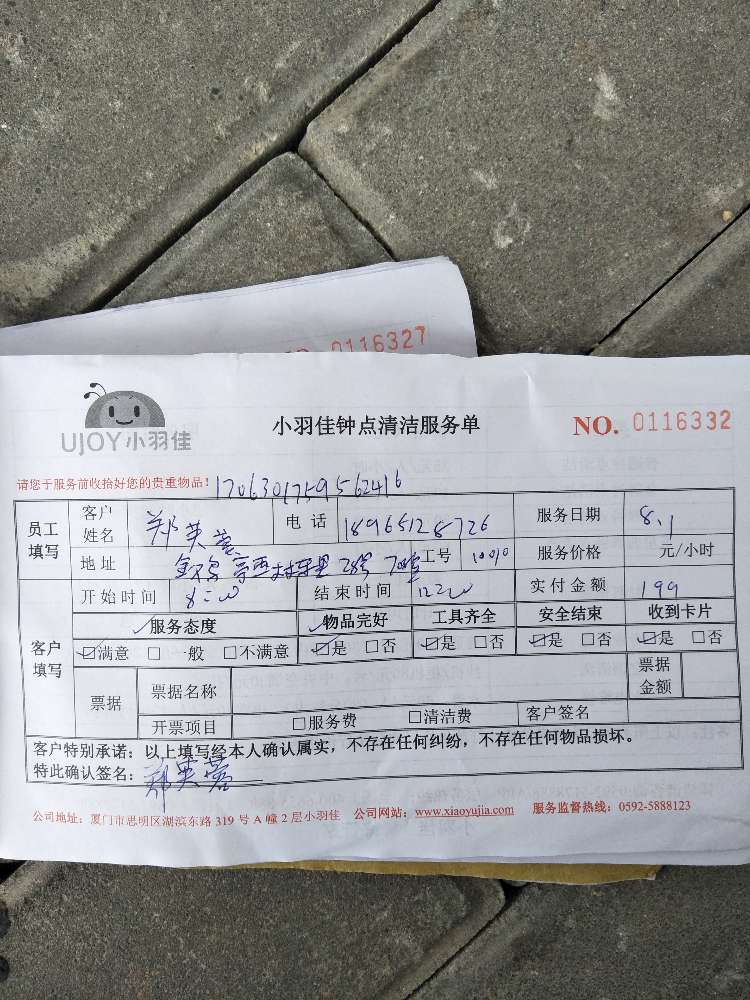 0116327
UJOY小羽佳
小羽佳钟点清洁服务单
NO. 0116332
请您于服务前收拾好您的贵重物品！
员工填写 客户姓名 郑芙蓉 电话 18965128726 服务日期 8.1
地址 28号 工号 服务价格 元/小时
客户填写 开始时间 8:00 结束时间 12:00 实付金额 199
服务态度 物品完好 工具齐全 安全结束 收到卡片
☑满意 □一般 □不满意 ☑是 □否 ☑是 □否 ☑是 □否 ☑是 □否
票据 票据名称 票据金额
开票项目 □服务费 □清洁费 客户签名
客户特别承诺：以上填写经本人确认属实，不存在任何纠纷，不存在任何物品损坏。
特此确认签名：郑芙蓉
公司地址：厦门市思明区湖滨东路 319 号 A 幢 2 层小羽佳 公司网站：www.xiaoyujia.com 服务监督热线：0592-5888123